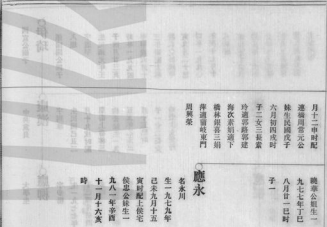 月十二申时配
連橋周常元公
妹生民國戊子
六月初四戌时
子二女三長素
玲適郭路郭建
海次素娟適下
橋林銀喜三娟
萍適甯岐東門
周興榮
曉華公姐生一
九七七年丁巳
八月廿一巳时
子一
應永
名永川
生一九七九年
己未九月十五
寅时配上侯宅
侯忠公妹生一
九八一年辛酉
十一月十六亥
時